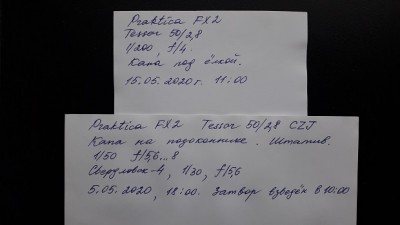 Praktica FX2
Tessar 50/2,8
1/200, f/4.
Капа под ёлкой.
15.05.2020г. 11:00
Praktica FX2 Tessar 50/2,8 CZJ
Капа на подоконнике. Штатив.
1/50 f/5,6...8
Свердловск-4, 1/30, f/5,6
5.05.2020, 18:00. Затвор взведён в 10:00